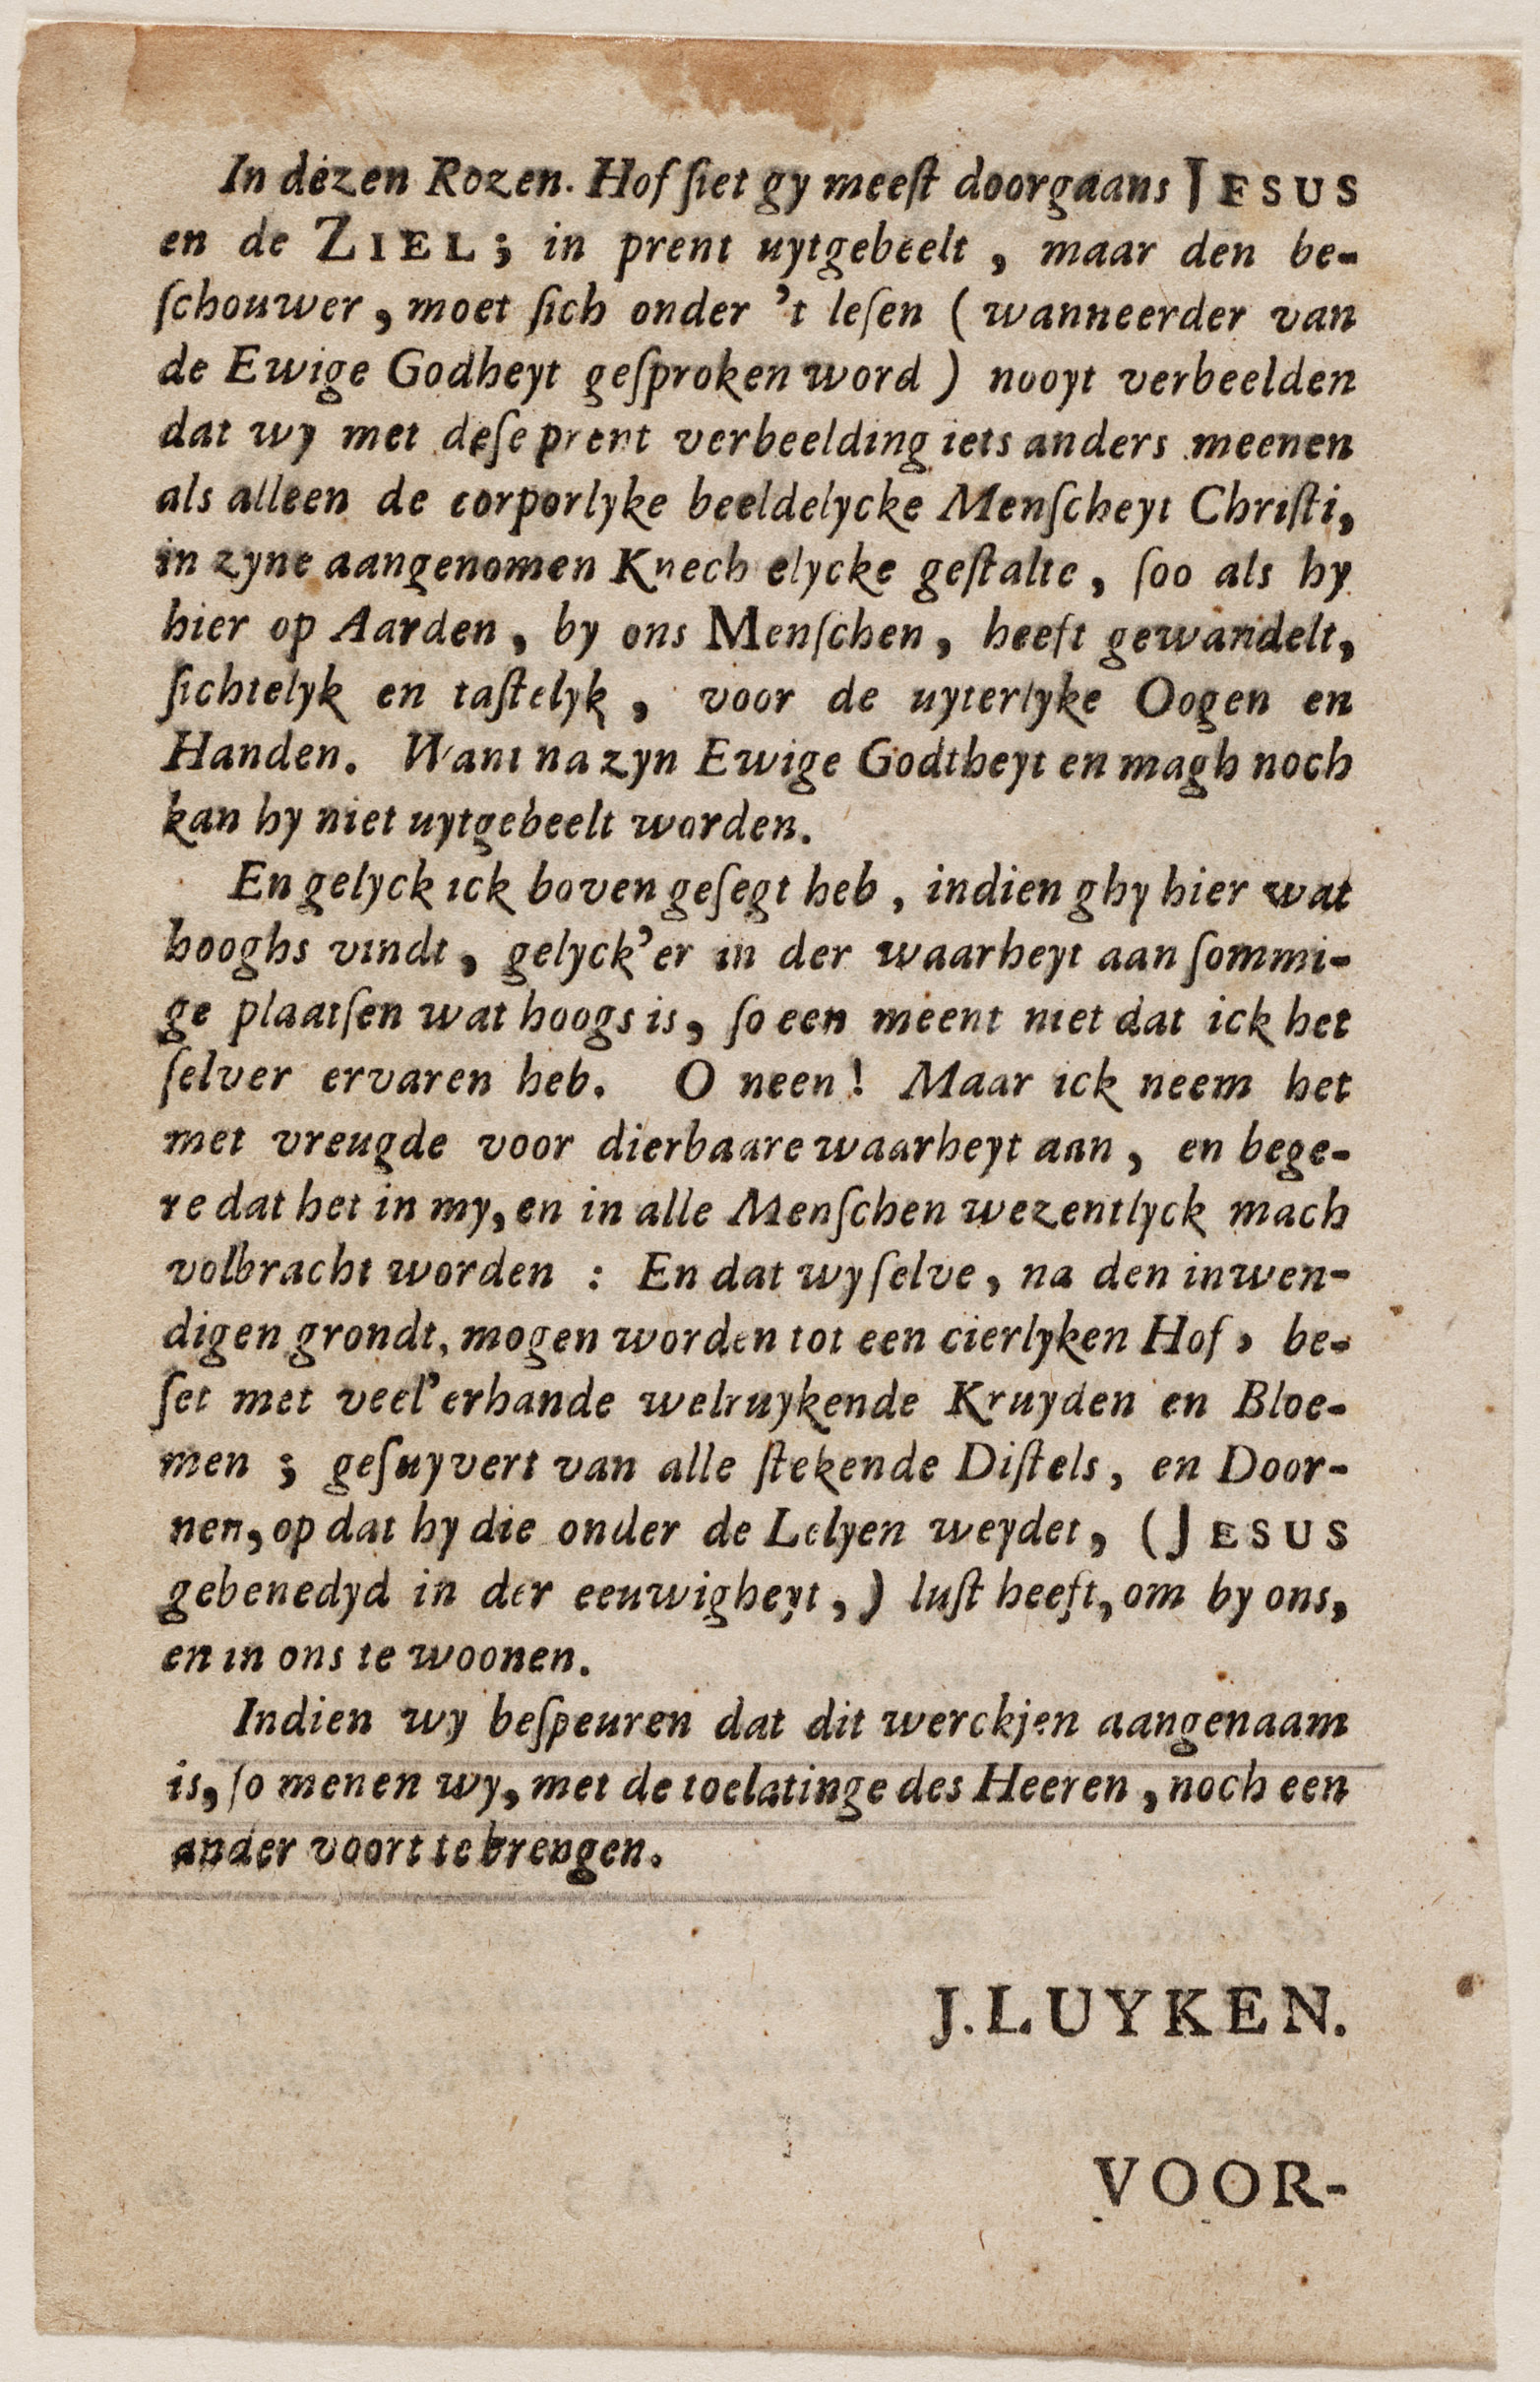 In dezen Rozen. Hof ſiet gy meeſt doorgaans JESUS
en de ZIEL; in prent uytgebeelt, maar den be-
ſchouwer, moet ſich onder 't leſen (wanneerder van
de Ewige Godheyt geſproken word) nooyt verbeelden
dat wy met deſe prent verbeelding iets anders meenen
als alleen de corporlyke beeldelycke Menſcheyt Chriſti,
in zyne aangenomen Knech elycke geſtalte, ſoo als hy
hier op Aarden, by ons Menſchen, heeft gewandelt,
ſichtelyk en taſtelyk, voor de uyterlyke Oogen en
Handen. Want na zyn Ewige Godtheyt en magh noch
kan hy niet uytgebeelt worden.
En gelyck ick boven geſegt heb, indien ghy hier wat
hooghs vindt, gelyck'er in der waarheyt aan ſommi-
ge plaatſen wat hoogs is, ſo een meent niet dat ick het
ſelver ervaren heb. O neen! Maar ick neem het
met vreugde voor dierbaare waarheyt aan, en bege-
re dat het in my, en in alle Menſchen wezentlyck mach
volbracht worden : En dat wy ſelve, na den inwen-
digen grondt, mogen worden tot een cierlyken Hof, be-
ſet met veel'erhande welruykende Kruyden en Bloe-
men ; geſuyvert van alle ſtekende Diſtels, en Door-
nen, op dat hy die onder de Lelyen weydet, (JESUS
gebenedyd in der eeuwigheyt,) luſt heeft, om by ons,
en in ons te woonen.
Indien wy beſpeuren dat dit werckjen aangenaam
is, ſo menen wy, met de toelatinge des Heeren, noch een
ander voort te brengen.
J. LUYKEN.
VOOR-